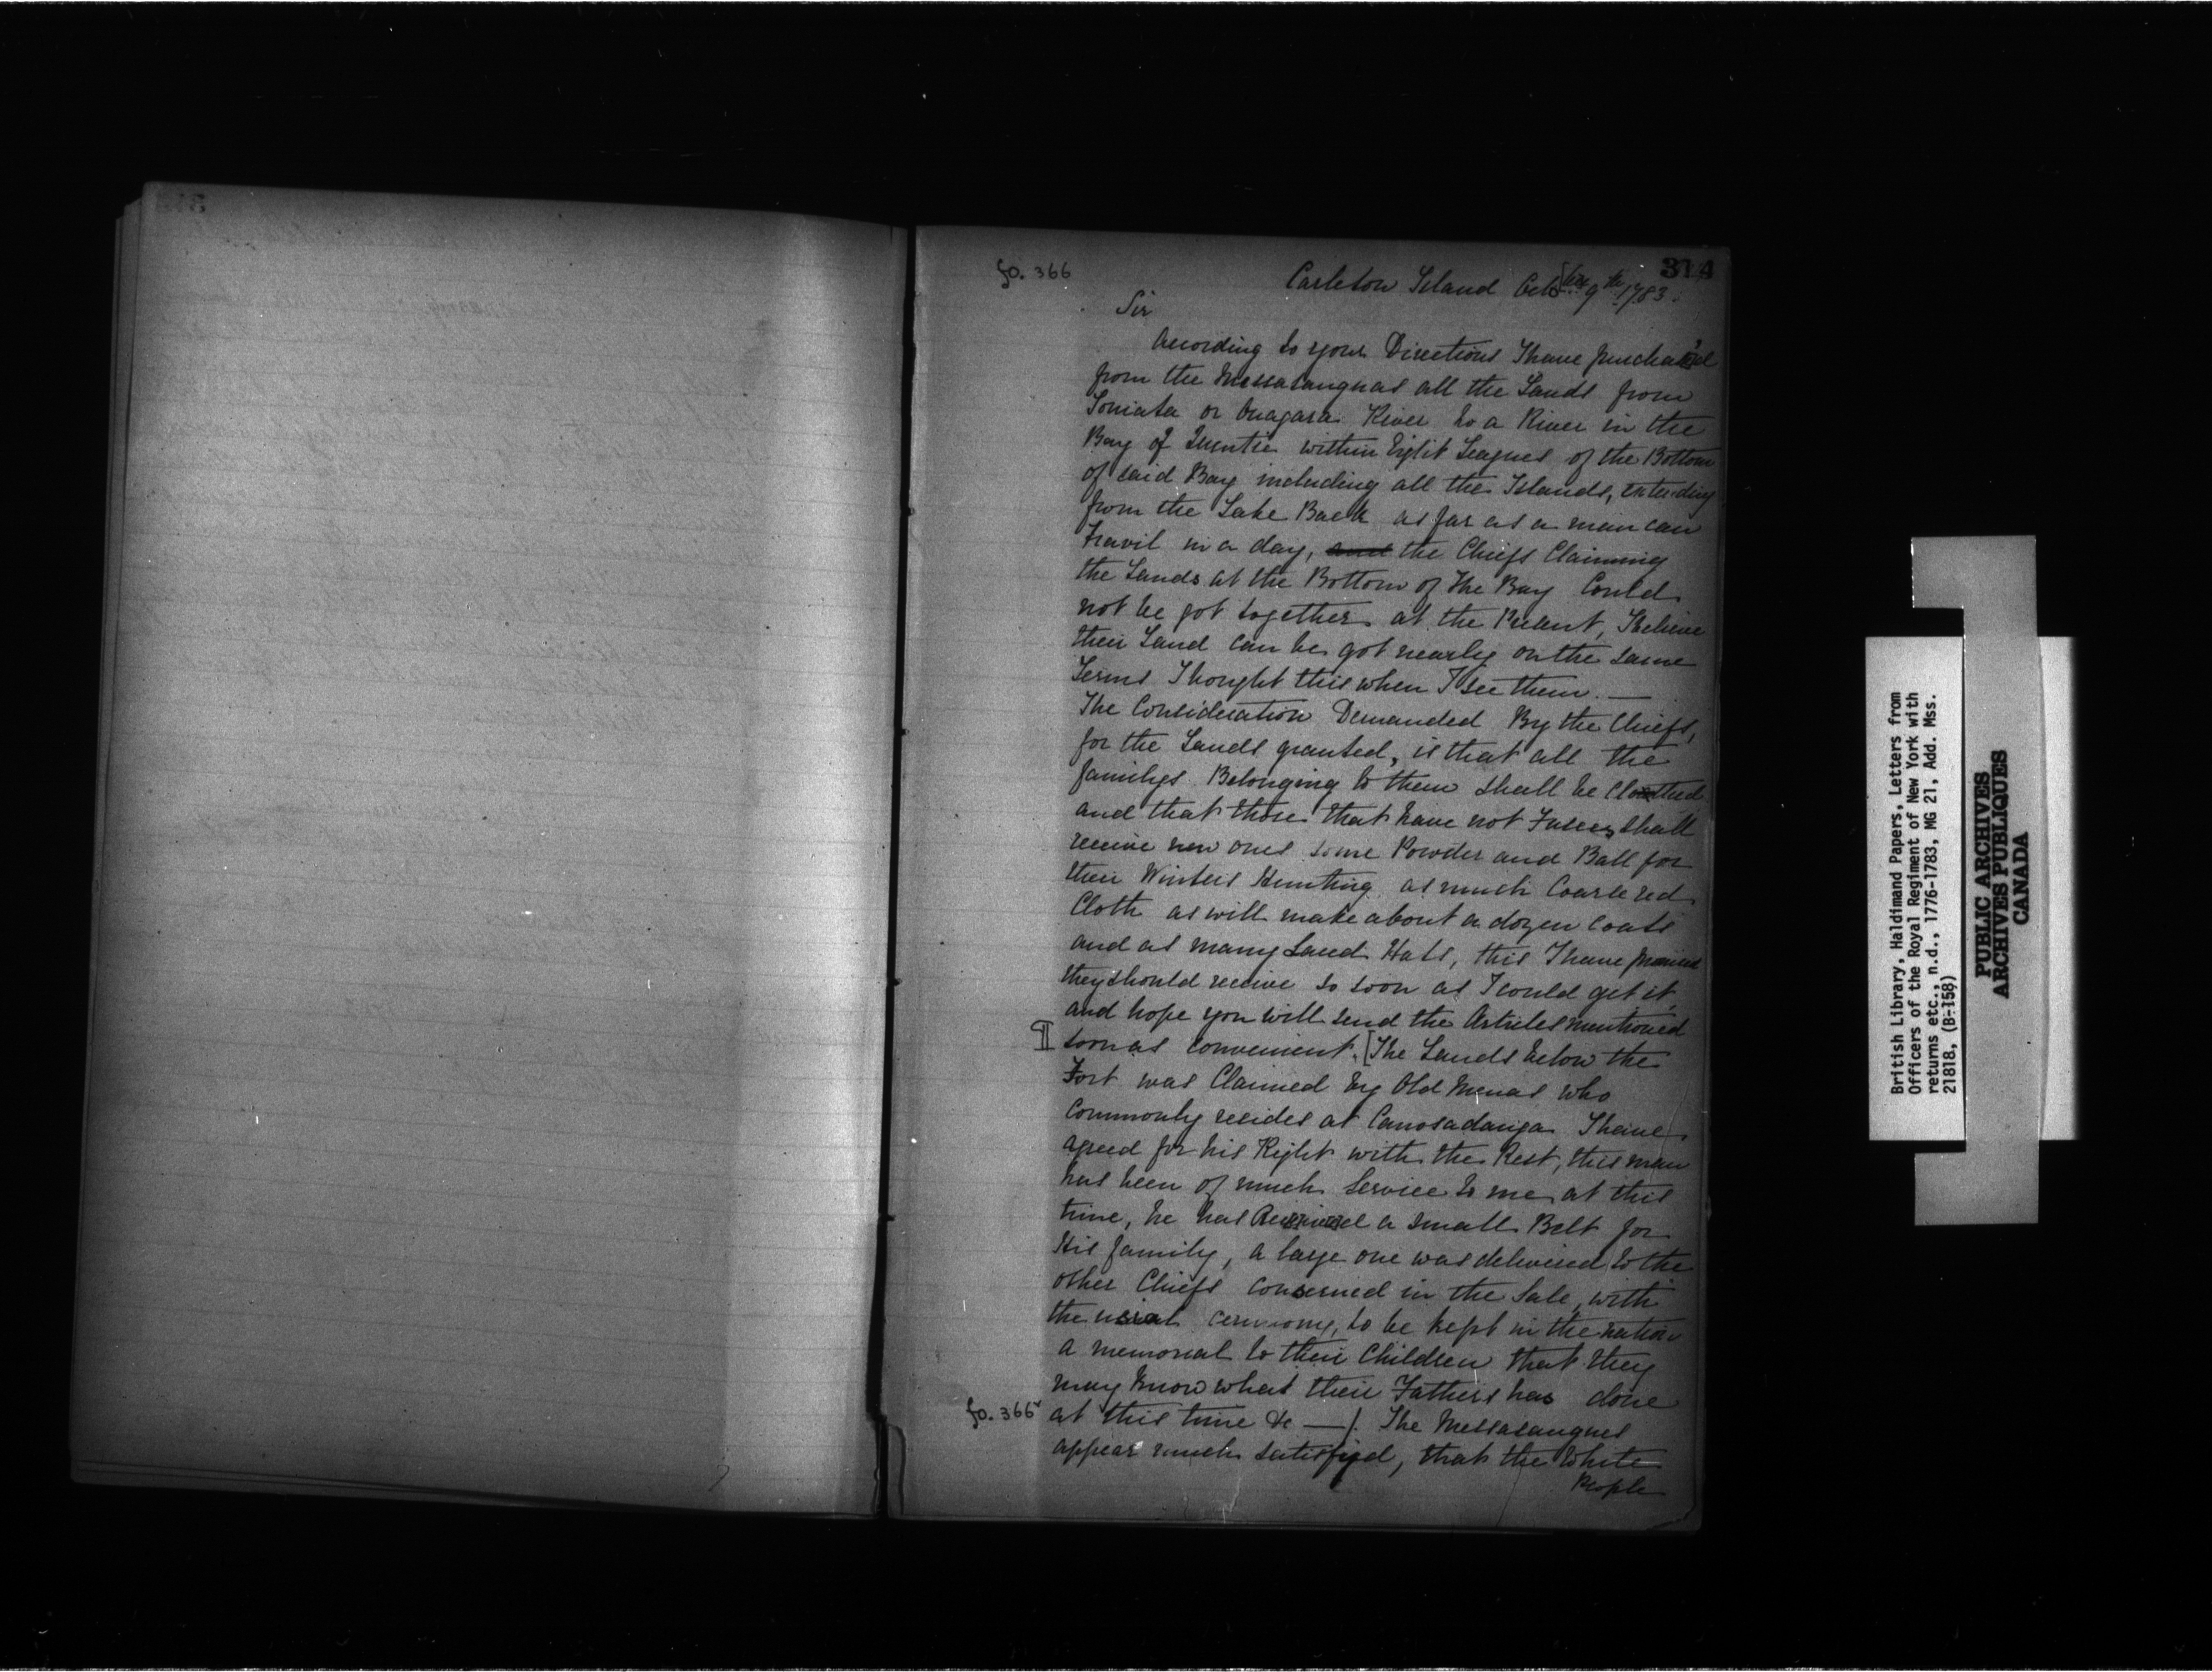 314
fo. 366
Carleton Island Octo[ber 9th 1783.
Sir
According to your Directions I have purchas'd
from the Messasaugnas all the Lands from
Toniata or Onagara River to a River in the
Bay of Quentie within Eight Leagues of the Bottom
of said Bay including all the Islands, extending
from the Lake Back as far as a man can
Travil in a day, and the Chiefs Claiming
the Lands at the Bottom of the Bay Could
not be got together at the Present, I believe
their Land can be got nearly on the same
Terms Thought this when I see them. —
The Consideration Demanded By the Chiefs,
for the Lands granted, is that all the
familys Belonging to them shall be Cloathed
and that those that have not Fusees shall
receive new ones some Powder and Ball for
their Winters Hunting as much Coarse red
Cloth as will make about a dozen Coats
and as many Laced Hats, this I have promised
they should receive so soon as I could get it,
and hope you will send the Articles mentioned
¶ soon as convenient. [The Lands below the
Fort was Claimed by Old Menas who
Commonly resides at Canosadanga I have
agreed for his Right with the Rest, this man
has been of much Service to me at this
time, he has Received a small Belt for
His family, a large one was delivered to the
other Chiefs conserned in the Sale, with
the usial ceremony, to be kept in the nation
a memorial to their Children that they
may Know what their Fathers has done
fo. 366v
at this time &c —/. The Messasaugues
appear much satisfyed, that the White
People
British Library, Haldimand Papers, Letters from
Officers of the Royal Regiment of New York with
returns etc., n.d., 1776-1783, MG 21, Add. Mss.
21818, (B-158)
PUBLIC ARCHIVES
ARCHIVES PUBLIQUES
CANADA